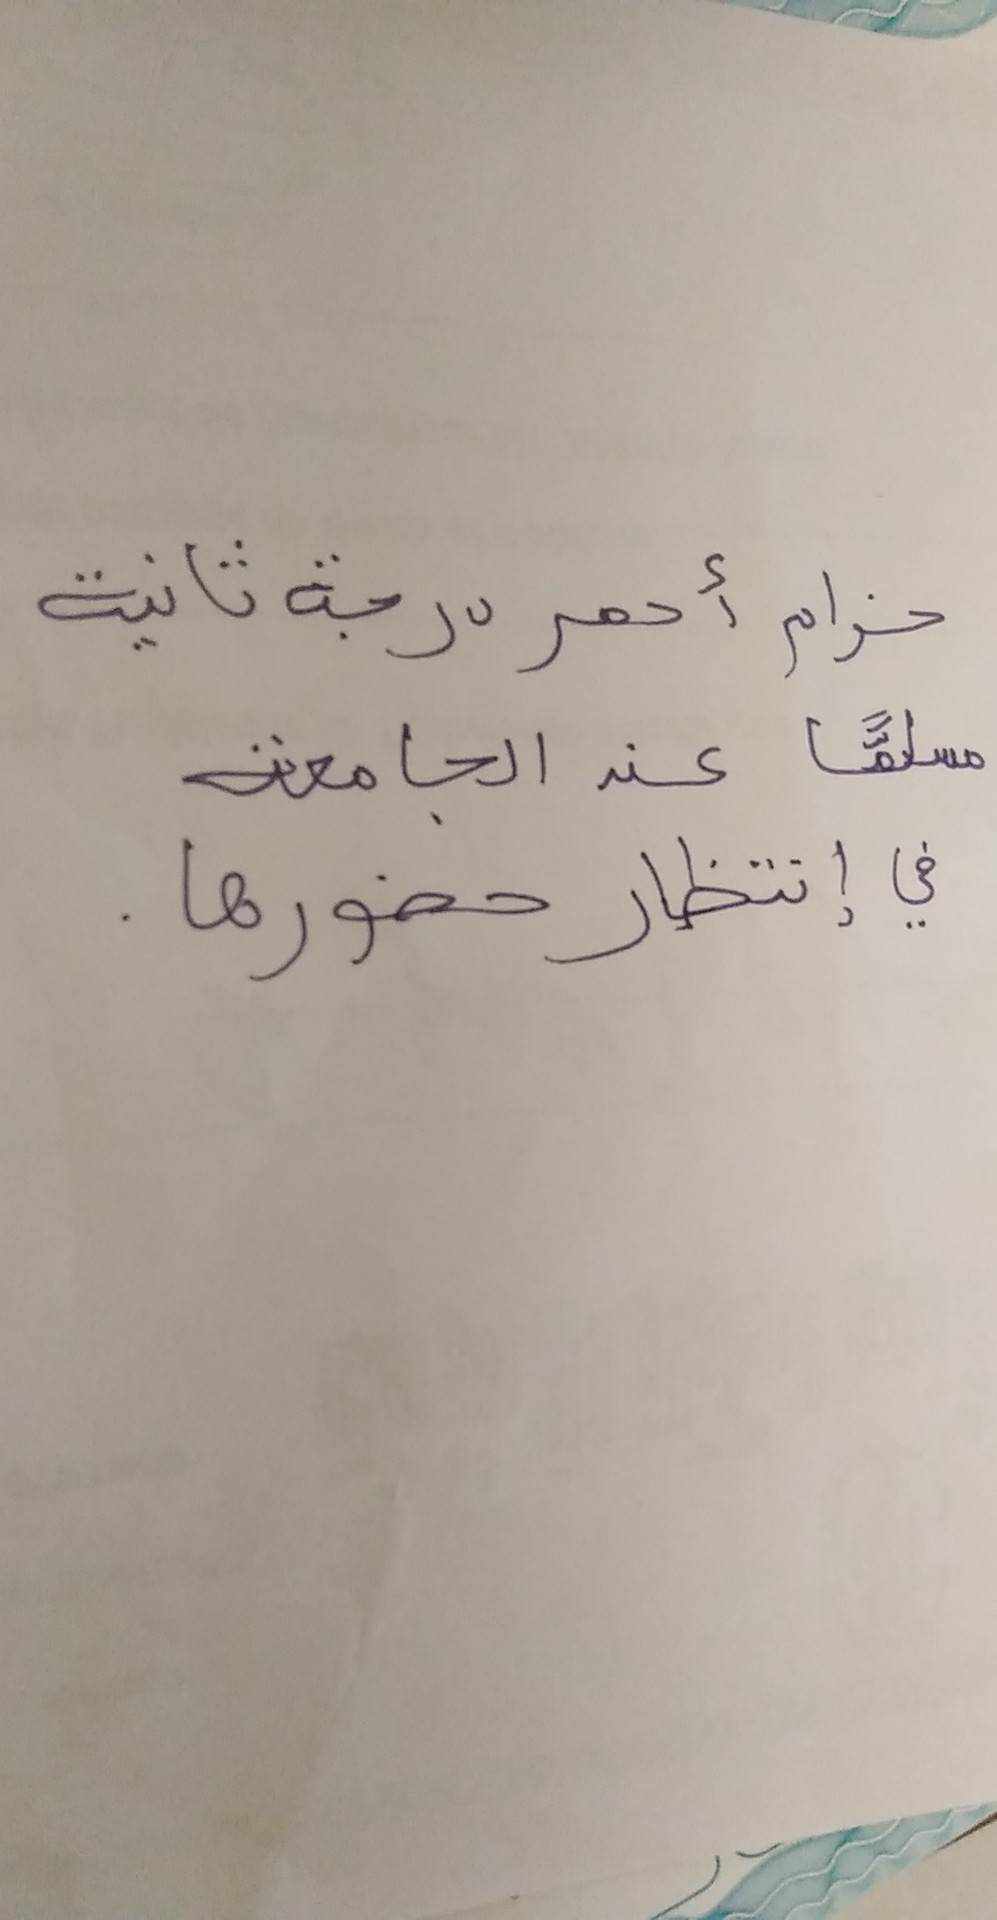 حزام أحمر درجة ثانية
مسلمًا عند الجامعة
في إنتظار حضورها .